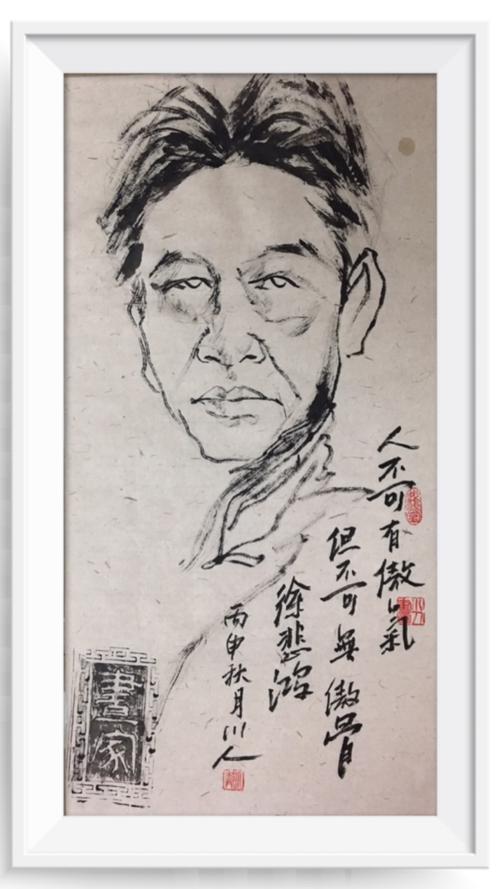 人不可有傲氣
但不可無傲骨
徐悲鴻
丙申秋月川人
畫家